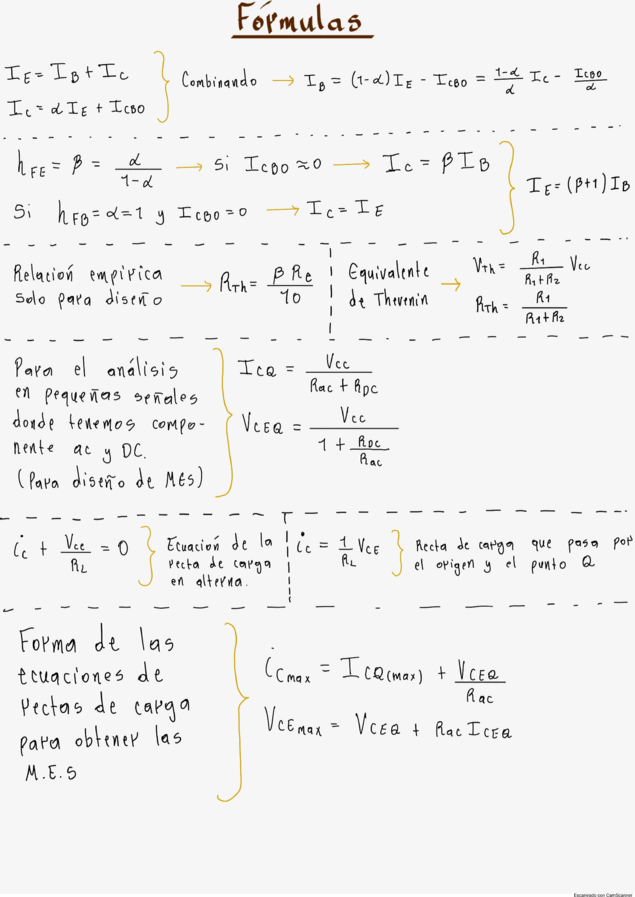 Fórmulas
I_E = I_B + I_C
I_C = α I_E + I_CBO
Combinando → I_B = (1-α) I_E - I_CBO = (1-α)/α I_C - I_CBO/α
h_FE = β = α/(1-α) → Si I_CBO ≈ 0 → I_C = β I_B
Si h_FB = α = 1 y I_CBO = 0 → I_C = I_E
I_E = (β+1) I_B
Relación empírica
solo para diseño
→ R_Th = β R_e/10
Equivalente
de Thevenin
→ V_Th = R_1/(R_1+R_2) V_cc
R_Th = R_1/(R_1+R_2)
Para el análisis
en pequeñas señales
donde tenemos compo-
nente ac y DC.
(Para diseño de MES)
I_CQ = V_cc/(R_ac + R_DC)
V_CEQ = V_cc/(1 + R_DC/R_ac)
i_c + V_ce/R_L = 0
Ecuación de la
recta de carga
en alterna.
i_c = 1/R_L V_CE
Recta de carga que pasa por
el origen y el punto Q
Forma de las
ecuaciones de
rectas de carga
para obtener las
M.E.S
i_Cmax = I_CQ(max) + V_CEQ/R_ac
V_CEmax = V_CEQ + R_ac I_CEQ
Escaneado con CamScanner